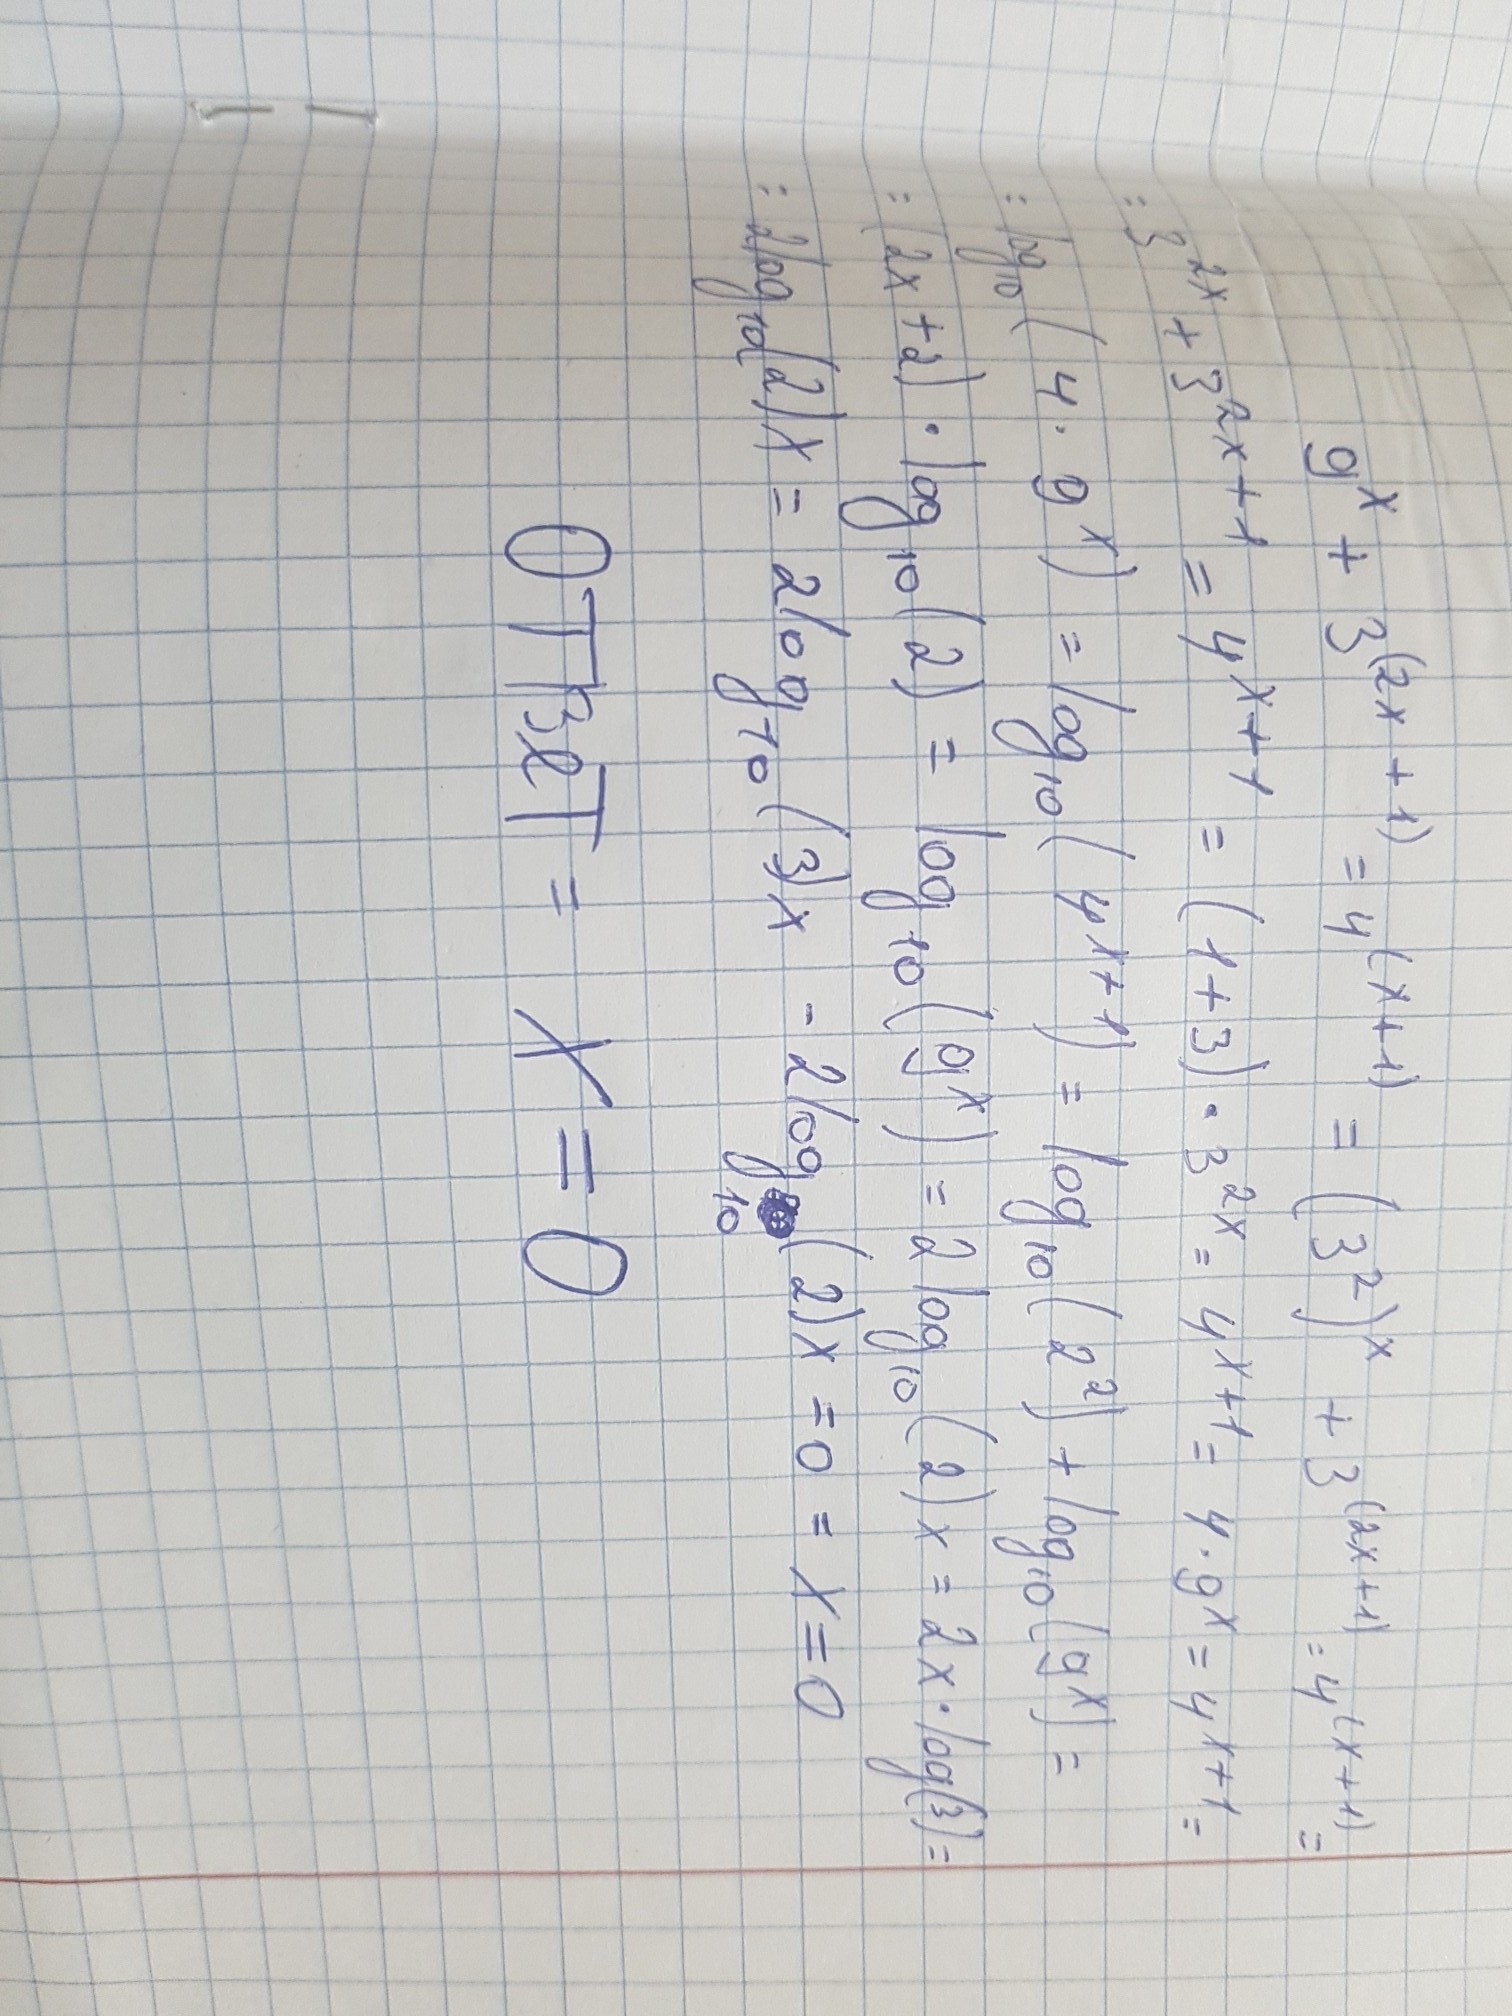 9^x + 3^(2x+1) = 4^(x+1) = (3^2)^x + 3^(2x+1) = 4^(x+1) =
= 3^2x + 3^2x+1 = 4^x+1 = (1+3) · 3^2x = 4^x+1 = 4 · 9^x = 4^x+1 =
= log_10 (4 · 9^x) = log_10 (4^x+1) = log_10 (2^2) + log_10 (9^x) =
= (2x+2) · log_10 (2) = log_10 (9^x) = 2log_10 (2)x = 2x · log(3) =
= 2log_10 (2)x = 2log_10 (3)x - 2log_10 (2)x = 0 = x=0
Ответ = x = 0